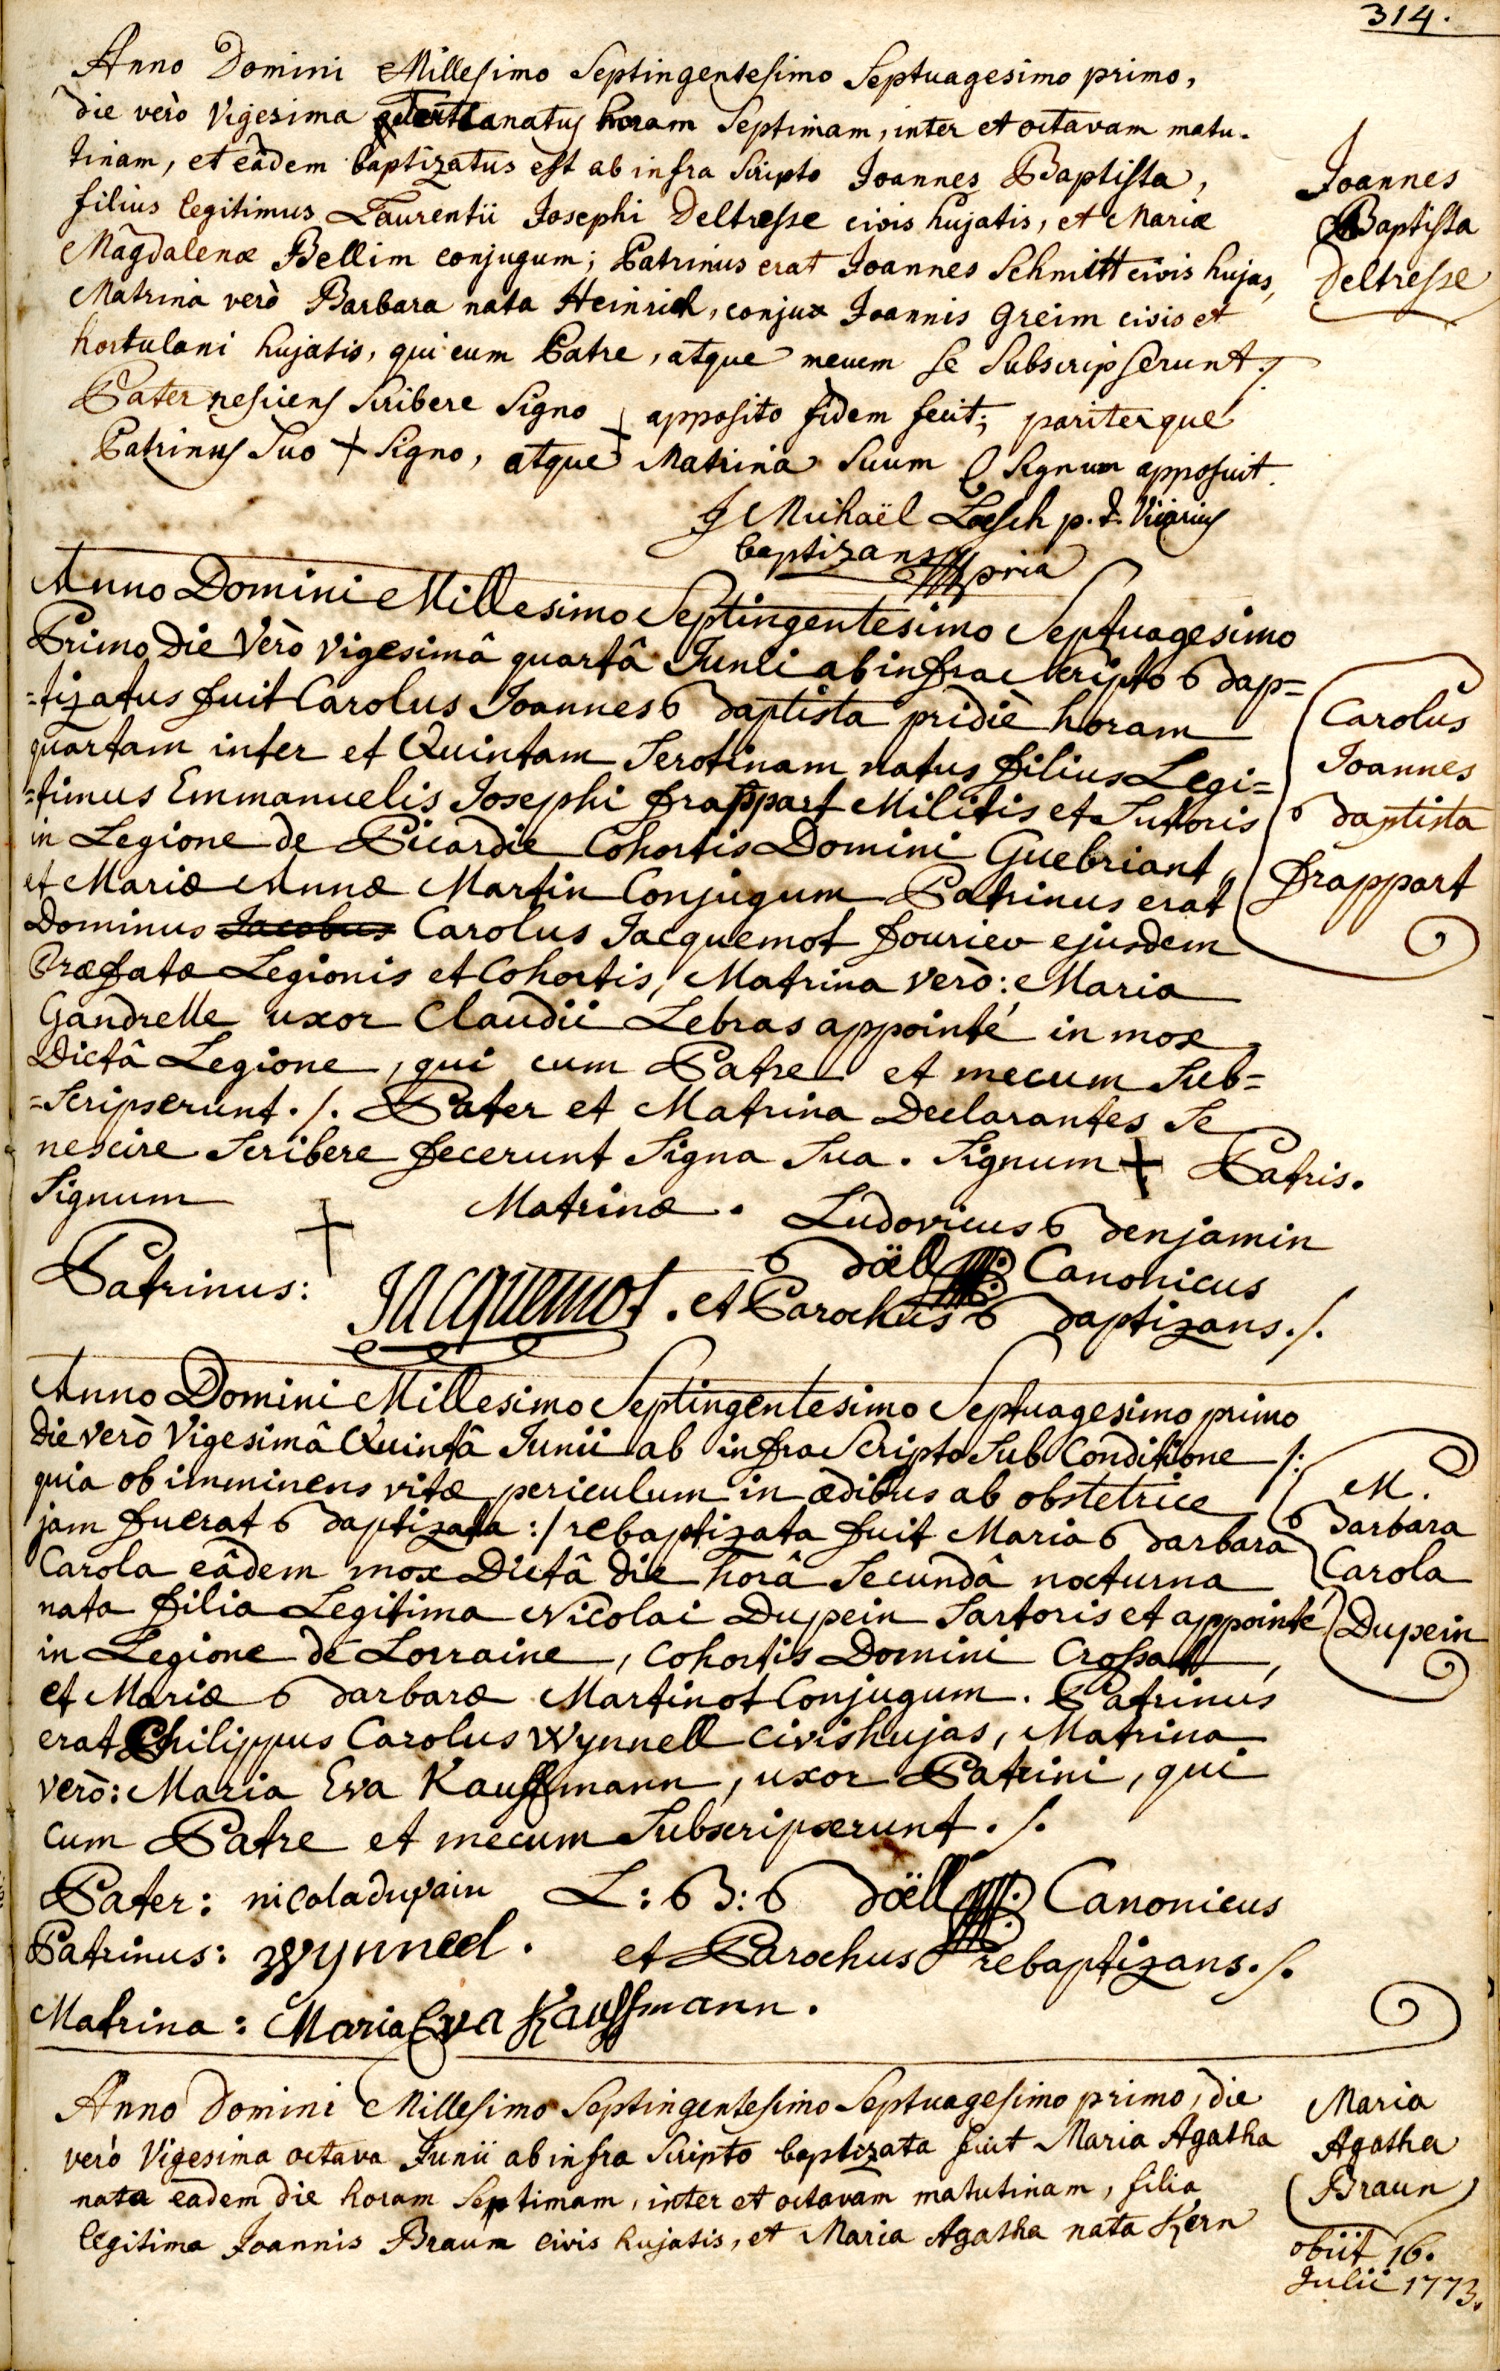 314.
Anno Domini Millesimo Septingentesimo Septuagesimo primo,
die verò Vigesima natus horam Septimam, inter et octavam matu-
tinam, et eâdem baptizatus est ab infra Scripto Joannes Baptista,
filius legitimus Laurentii Josephi Deltresse civis hujatis, et Mariæ
Magdalenæ Bellim conjugum; Patrinus erat Joannes Schmitt civis hujas,
Matrina verò Barbara nata Heinrich, conjux Joannis Greim civis et
hortulani hujatis, qui cum Patre, atque mecum se Subscripserunt ./.
Pater nesciens Scribere Signo + apposito fidem fecit; pariterque
Patrinus Suo + Signo, atque Matrina Suum O Signum apposuit.
J Michaël Loesch p. t. Vicarius
baptizans mpria
Joannes
Baptista
Deltresse
Anno Domini Millesimo Septingentesimo Septuagesimo
Primo Die Verò Vigesimâ quartâ Junii ab infra Scripto Bap=
=tizatus fuit Carolus Joannes Baptista pridiè horam
quartam inter et Quintam Serotinam natus filius Legi=
=timus Emmanuelis Josephi frappart Militis et Sutoris
in Legione de Picardie Cohortis Domini Guebriant,
et Mariæ Annæ Martin Conjugum Patrinus erat
Dominus Jacobus Carolus Jacquemot fourier ejusdem
Præfatæ Legionis et Cohortis, Matrina verò: Maria
Gandrelle uxor Claudii Lebras appointé in mox
Dictâ Legione, qui cum Patre et mecum Sub=
=Scripserunt ./. Pater et Matrina Declarantes Se
nescire Scribere fecerunt Signa Sua. Signum + Patris.
Signum + Matrinæ. Ludovicus Benjamin
Böell Canonicus
Patrinus: Jacquemot. et Parochus Baptizans ./.
Carolus
Joannes
Baptista
frappart
Anno Domini Millesimo Septingentesimo Septuagesimo primo
Die verò Vigesimâ Quintâ Junii ab infra Scripto Sub Conditione /:
quia ob imminens vitæ periculum in ædibus ab obstetrice
jam fuerat Baptizata :/ rebaptizata fuit Maria Barbara
Carola eâdem mox Dictâ die horâ Secundâ nocturna
nata filia Legitima Nicolai Dupein Sartoris et appointé
in Legione de Lorraine, Cohortis Domini Crossat,
et Mariæ Barbaræ Martinot Conjugum. Patrinus
erat Philippus Carolus Wynnell Civis hujas, Matrina
verò: Maria Eva Kauffmann, uxor Patrini, qui
cum Patre et mecum Subscripserunt ./.
Pater: nicola dupain L: B: Böell Canonicus
Patrinus: Wynneel. et Parochus rebaptizans ./.
Matrina: Maria Eva Kauffmann.
M.
Barbara
Carola
Dupein
Anno Domini Millesimo Septingentesimo Septuagesimo primo, die
verò Vigesima octava Junii ab infra Scripto baptizata fuit Maria Agatha
nata eadem die horam Septimam, inter et octavam matutinam, filia
legitima Joannis Braun civis hujatis, et Maria Agatha nata Kern
Maria
Agatha
Braun
obiit 16.
Julii 1773.